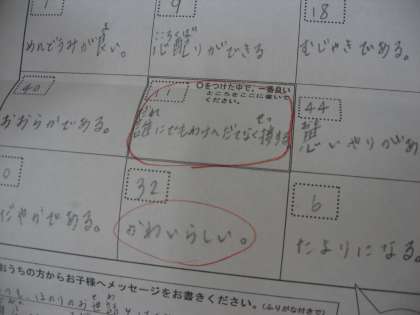 1
9
18
めんどうみが良い。
心配りができる
むじゃきである。
40
1
○をつけた中で、一番良い
ところをここに書いて
ください。
44
おおらかである。
誰にでもわけへだてなく接する
思いやりがあ
0
32
6
だやかである。
かわいらしい。
たよりになる。
おうちの方からお子様へメッセージをお書きください。(ふりがな付きで)